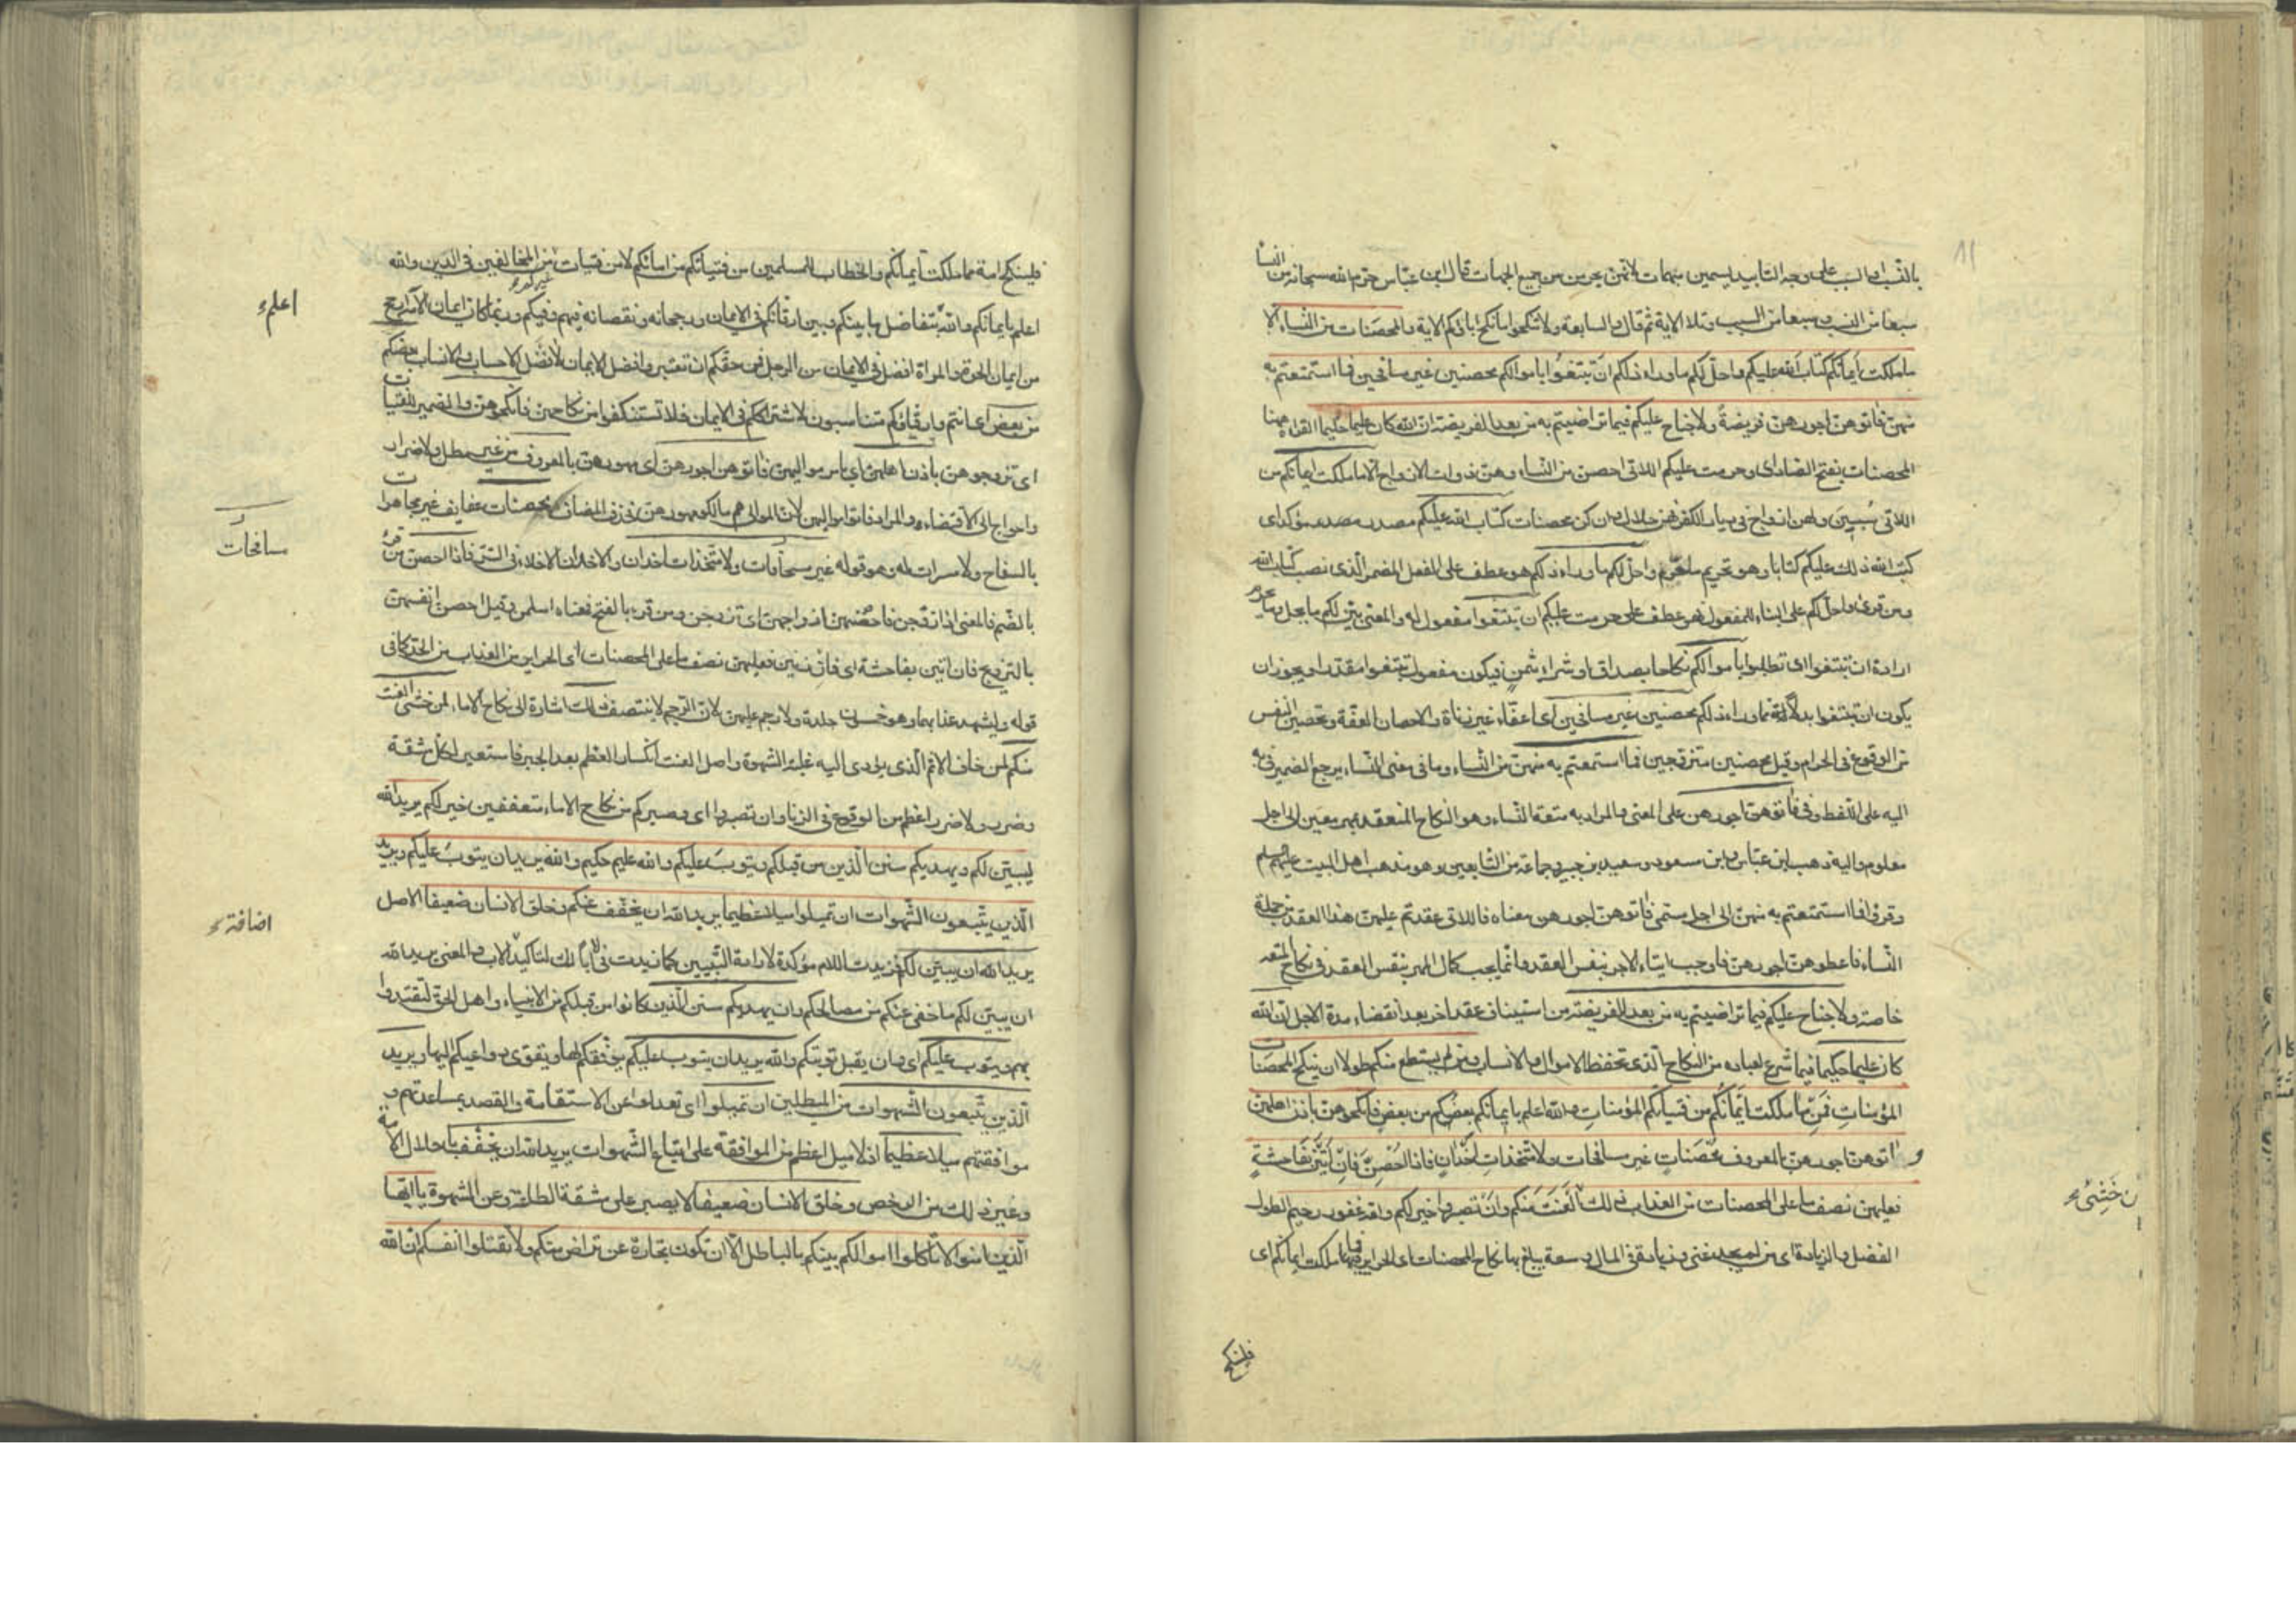 بالنسب او السبب على وجه التابيد يسمين مبهمات لانهن يحرمن من جميع الجهات قال ابن عباس حرم الله سبحانه من النسا
سبعا من النسب وسبعا من السبب وتلا الاية ثم قال والسابعة ولا تنكحوا ما نكح اباؤكم الاية والمحصنات من النساء الا
ما ملكت ايمانكم كتاب الله عليكم واحل لكم ما وراء ذلكم ان تبتغوا باموالكم محصنين غير مسافحين فما استمتعتم به
منهن فاتوهن اجورهن فريضة ولا جناح عليكم فيما تراضيتم به من بعد الفريضة ان الله كان عليما حكيما القراء ههنا
المحصنات بفتح الصاد اى وحرمت عليكم اللاتى احصن من النساء وهن ذوات الازواج الا ما ملكت ايمانكم من
اللاتى سبين ولهن ازواج فى ديار الكفر فهن حلال وان كن محصنات كتاب الله عليكم مصدر مؤكد اى
كتب الله ذلك عليكم كتابا وهو تحريم ما حرم واحل لكم ما وراء ذلكم هو عطف على الفعل المضمر الذى نصب كتاب الله
ومن قرئ واحل لكم على البناء للمفعول فهو عطف على حرمت عليكم ان تبتغوا مفعول له والمعنى بين لكم ما يحل مما يحرم
ارادة ان تبتغوا اى تطلبوا باموالكم نكاحا بصداق او شراء بثمن فيكون مفعول تبتغوا مقدرا ويجوز ان
يكون ان تبتغوا بدلا مما وراء ذلكم محصنين غير مسافحين اى اعفاء غير زناة والاحصان العفة وتحصين النفس
من الوقوع فى الحرام وقيل محصنين متزوجين فما استمتعتم به منهن من النساء وما فى معنى النساء يرجع الضمير فى به
اليه على اللفظ وفى فاتوهن اجورهن على المعنى والمراد به متعة النساء وهو النكاح المنعقد بمهر معين الى اجل
معلوم واليه ذهب ابن عباس وابن مسعود وسعيد بن جبير وجماعة من التابعين وهو مذهب اهل البيت عليهم السلم
وقرؤا فما استمتعتم به منهن الى اجل مسمى فاتوهن اجورهن معناه فاللاتى عقدتم عليهن هذا العقد من جملة
النساء فاعطوهن اجورهن فاوجب ايتاء الاجر بنفس العقد وانما يجب كمال المهر بنفس العقد فى نكاح المتعه
خاصة ولا جناح عليكم فيما تراضيتم به من بعد الفريضة من استيناف عقد اخر بعد انقضاء مدة الاجل ان الله
كان عليما حكيما فيما شرع لعباده من النكاح الذى تحفظ الاموال والانساب ومن لم يستطع منكم طولا ان ينكح المحصنات
المؤمنات فمن ما ملكت ايمانكم من فتياتكم المؤمنات والله اعلم بايمانكم بعضكم من بعض فانكحوهن باذن اهلهن
و اتوهن اجورهن بالمعروف محصنات غير مسافحات ولا متخذات اخدان فاذا احصن فان اتين بفاحشة
فعليهن نصف ما على المحصنات من العذاب ذلك العنت منكم وان تصبروا خير لكم والله غفور رحيم الطول
ن خشى
الفضل والزيادة اى من لم يجد غنى وزيادة فى المال وسعة يبلغ بها نكاح المحصنات اى الحراير فمما ملكت ايمانكم اى
فلينكح
فلينكح امة مما ملكت ايمانكم والخطاب للمسلمين من فتياتكم من امائكم لا من فتيات غيركم من المخالفين فى الدين والله
اعلم بايمانكم والله بتفاضل ما بينكم وبين ارقائكم فى الايمان ورجحانه ونقصانه فيهم وفيكم وربما كان ايمان الامة ارجح
اعلم
من ايمان الحرة والمراة افضل فى الايمان من الرجل فمن حقكم ان تعتبروا فضل الايمان لا فضل الاحساب والانساب بعضكم
من بعض اى انتم وارقاؤكم متناسبون لاشتراككم فى الايمان فلا تستنكفوا من نكاحهن فانكحوهن والضمير للفتيات
اى تزوجوهن باذن اهلهن اى بامر مواليهن فاتوهن اجورهن اى مهورهن بالمعروف من غير مطل ولا ضرار
واحواج الى الاقتضاء والمراد فاتوا مواليهن لان الموالى هم مالكو مهورهن فحذف المضاف محصنات عفايف غير مجاهرات
مسافحات
بالسفاح ولا مسرات له وهو قوله غير ولا متخذات اخدان والاخدان الاخلاء فى السر فاذا احصن من قرء
بالضم فالمعنى اذا زوجن فاحصنهن ازواجهن اى تزوجن ومن قرء بالفتح فمعناه اسلمن وقيل احصن انفسهن
بالتزويج فان اتين بفاحشة اى فان زنين فعليهن نصف ما على المحصنات اى الحراير من العذاب من الحد كما فى
قوله وليشهد عذابهما وهو خمسون جلدة ولا رجم عليهن لان الرجم لا ينتصف ذلك اشارة الى نكاح الاماء لمن خشى العنت
منكم لمن خاف الاثم الذى يؤدى اليه غلبة الشهوة واصل العنت انكسار العظم بعد الجبر فاستعير لكل مشقة
وضرر ولا ضرر اعظم من الوقوع فى الزنا وان تصبروا اى وصبركم من نكاح الاماء متعففين خير لكم يريد الله
ليبين لكم ويهديكم سنن الذين من قبلكم ويتوب عليكم والله عليم حكيم والله يريد ان يتوب عليكم ويريد
الذين يتبعون الشهوات ان تميلوا ميلا عظيما يريد الله ان يخفف عنكم وخلق الانسان ضعيفا الاصل
اضافة
يريد الله ان يبين لكم فزيدت اللام مؤكدة لارادة التبيين كما زيدت فى لا ابا لك لتاكيد الاب والمعنى يريد الله
ان يبين لكم ما خفى عنكم من مصالحكم وان يهديكم سنن الذين كانوا من قبلكم من الانبياء واهل الحق لتقتدوا
بهم ويتوب عليكم اى وان يقبل توبتكم والله يريد ان يتوب عليكم يوفقكم لها ويقوى دواعيكم اليها ويريد
الذين يتبعون الشهوات من المبطلين ان تميلوا اى تعدلوا عن الاستقامة والقصد بمساعدتهم و
موافقتهم ميلا عظيما اذ لا ميل اعظم من الموافقة على اتباع الشهوات يريد الله ان يخفف باحلال الامة
وغير ذلك من الرخص وخلق الانسان ضعيفا لا يصبر على مشقة الطاعة وعن الشهوة يا ايها
الذين امنوا لا تاكلوا اموالكم بينكم بالباطل الا ان تكون تجارة عن تراض منكم ولا تقتلوا انفسكم ان الله